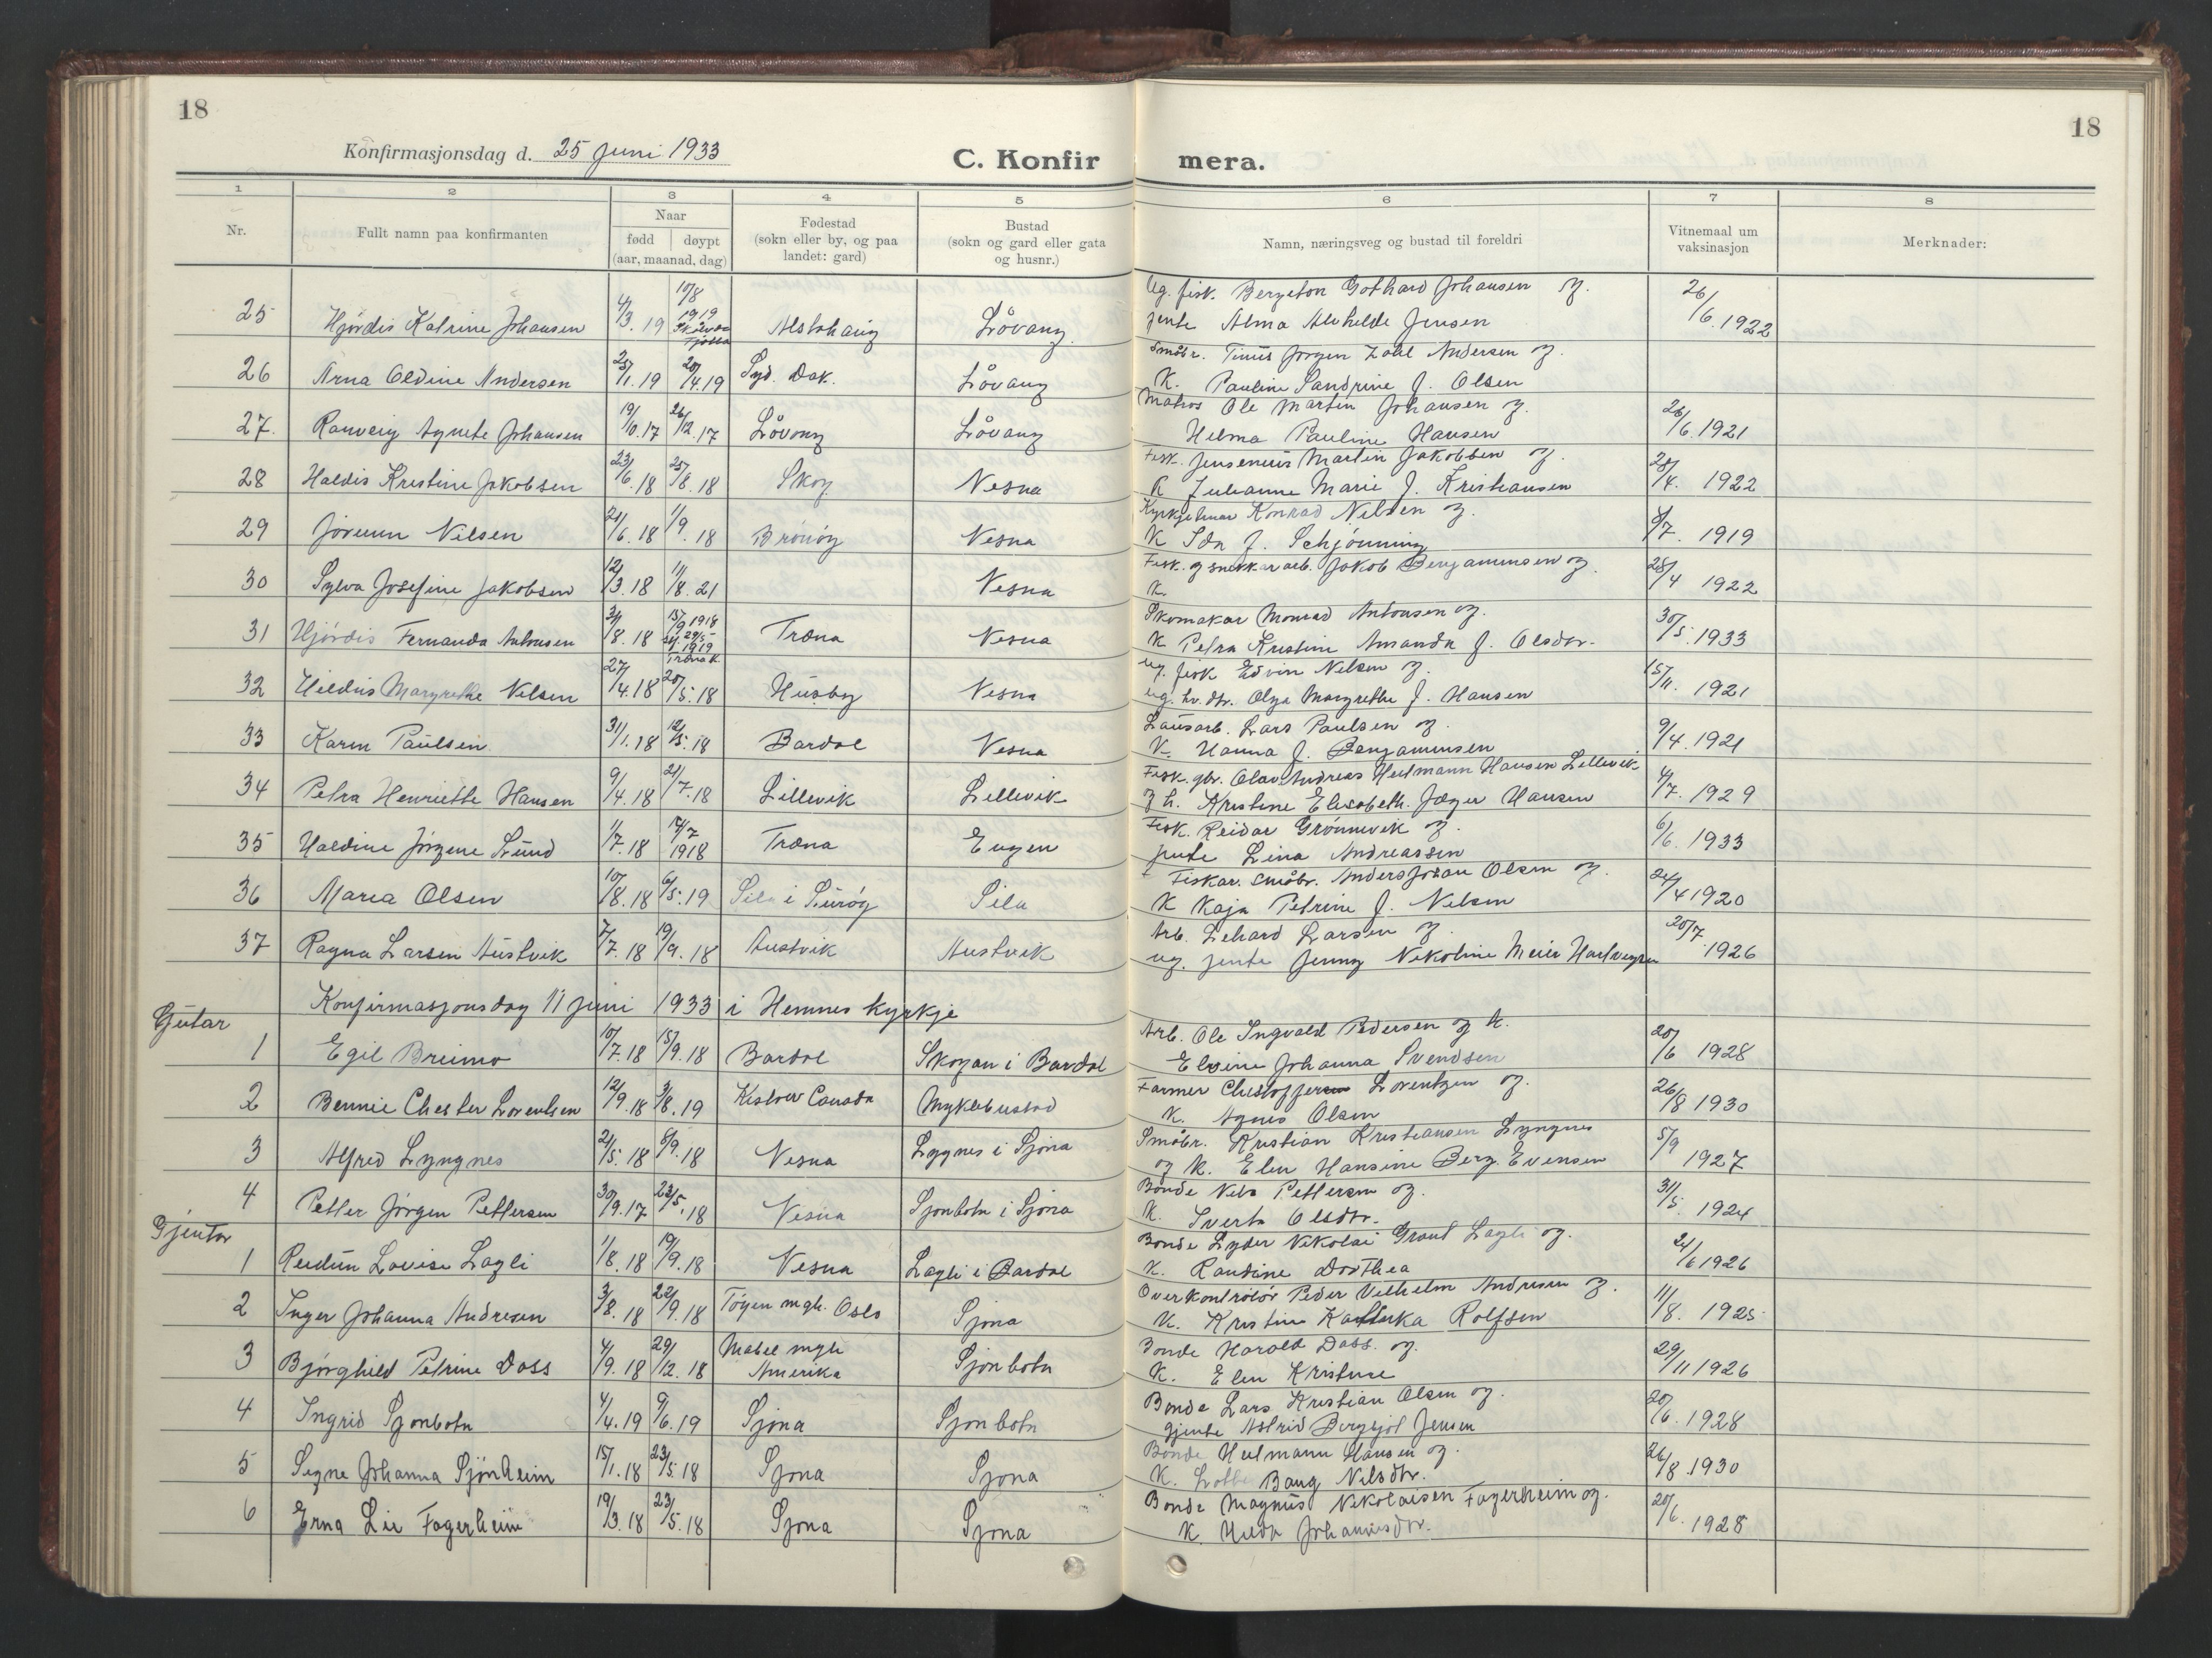 18
18
Konfirmasjonsdag d. 25 juni 1933
C. Konfir mera.
1 2 3 4 5 6 7 8
Nr.
Fullt namn paa konfirmanten
Naar
fødd døypt
(aar, maanad, dag)
Fødestad
(sokn eller by, og paa
landet: gard)
Bustad
(sokn og gard eller gata
og husnr.)
Namn, næringsveg og bustad til foreldri
Vitnemaal um
vaksinasjon
Merknader:
25 Hjørdis Katrine Johansen 4/3. 19 10/8 1919 Alstahaug Løvang Ug. fisk. Bergeton Gothard Johansen og 26/6. 1922
jente Alma Jensen
26 Arna Oldine Andersen 25/1. 19 20/4. 19 Løvang Småbr. Tinus Jørgen Zahl Andersen og
K. Pauline Sandrine f. Olsen
27. Ranveig Agnete Johansen 19/10. 17 26/12. 17 Løvang Løvang Matros Ole Martin Johansen og 26/6. 1921
Helma Pauline Hansen
28 Haldis Kristine Jakobsen 23/6. 18 25/8. 18 Skog Nesna Fisk. Jensenius Martin Jakobsen og 28/4. 1922
K Julianne Marie f. Kristiansen
29 Jorunn Nilsen 21/6. 18 1/9. 18 Brønøy Nesna Konrad Nilsen og 1919
K Ida f. Schjønning
30 Sylva Josefine Jakobsen 12/3. 18 11/8. 21 Nesna Fisk. og snekkararb. Jakob Benjaminsen og 28/4 1922
K.
31 Hjørdis Fernanda Antonsen 31/8. 18 15/9 1918 Træna Nesna Skomakar Monrad Antonsen og 30/5. 1933
K Petra Kristine Amanda f. Olsdtr.
32 Hildus Margrethe Nilsen 27/4. 18 20/5. 18 Husby Nesna Ug. fisk Edvin Nilsen og 15/11. 1921
ug. hv. dtr. Olga Margrethe f. Hansen
33 Karen Paulsen 31/1. 18 12/5. 18 Bardal Nesna Lausarb. Lars Paulsen og 9/4. 1921
K. Hanna f. Benjaminsen
34 Petra Henriette Hansen 9/4. 18 21/7. 18 Lillevik Lillevik Fisk. gbr. Olav Andreas Heitmann Hansen Lillevik 4/7. 1929
og h. Kristine Elisabeth Jæger Hansen
35 Haldine Jørgene Lund 1/7. 18 14/7 1918 Træna Eugen Fisk. Reidar Grønnevik og 6/6. 1933
jente Lina Andreassen
36 Marea Olsen 10/8. 18 6/5. 19 Sila i Lurøy Sila Fiskar. Småbr. Anders Johan Olsen og 24/4 1920
K Kaja Petrine f. Nilsen
37 Ragna Larsen Austvik 7/7. 18 19/9. 18 Austvik Austvik Arb. Lehard Larsen og 20/7. 1926
ug. jente Jenny Nikoline Meier
Konfirmasjonsdag 11 juni 1933 i Hemnes kyrkje
Gutar
1 Egil Breimo 10/7. 18 15/9. 18 Bardal Skogan i Bardal Arb. Ole Ingvald Pedersen og k. 20/6 1928
Elvine Johanna Svendsen
2 Bennie Chester Lorentsen 12/9. 18 3/8. 19 Canada Myklebustad Farmer Lorentzen og 26/8 1930
K. Agnes Olsen
3 Alfred Lyngnes 21/5. 18 8/9. 18 Nesna Lygnes i Sjona Småbr. Kristian Kristiansen Lyngnes 5/9 1927
og K. Elen Hansine Berg Evensen
4 Petter Jørgen Pettersen 30/9. 17 23/5. 18 Nesna Sjonbotn i Sjona Bonde Nils Pettersen og 31/5. 1924
K. Sverta Olsdtr.
Gjentor
1 Reidun Lovise Lagli 1/8. 18 19/9. 18 Nesna Lagli i Bardal Bonde Lyder Nikolai Grand Lagli og 21/6 1926
K. Randine Dorthea
2 Inger Johanna Andresen 3/8. 18 22/9. 18 Tøyen mgh. Oslo Sjona Overkontrolør Peder Vilhelm Andresen og 11/8. 1925
K. Kristine Rolfsen
3 Bjørghild Petrine Dass 4/9. 18 29/12. 18 Mabel mgh Amerika Sjonbotn Bonde Harald Dass. og 29/11 1926
K. Elen Kristine
4 Ingrid Sjonbotn 4/4. 19 9/6. 19 Sjona Sjonbotn Bonde Lars Kristian Olsen og 20/6. 1928
gjente Astrid Bergljot Jensen
5 Signe Johanna Sjonheim 15/1. 18 23/5. 18 Sjona Sjona Bonde Heitmann Hansen og 26/8 1930
K. Lotte Baug Nilsdtr.
6 Erna Liv Fagerheim 19/3. 18 23/5. 18 Sjona Sjona Bonde Magnus Nikolaisen Fagerheim og 20/6. 1928
K. Hilda Johannesdtr.